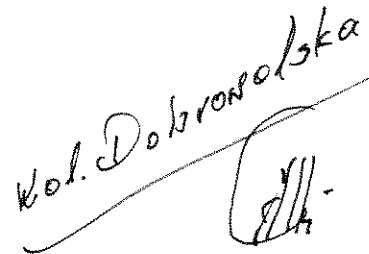 Kol. Dobrowolska